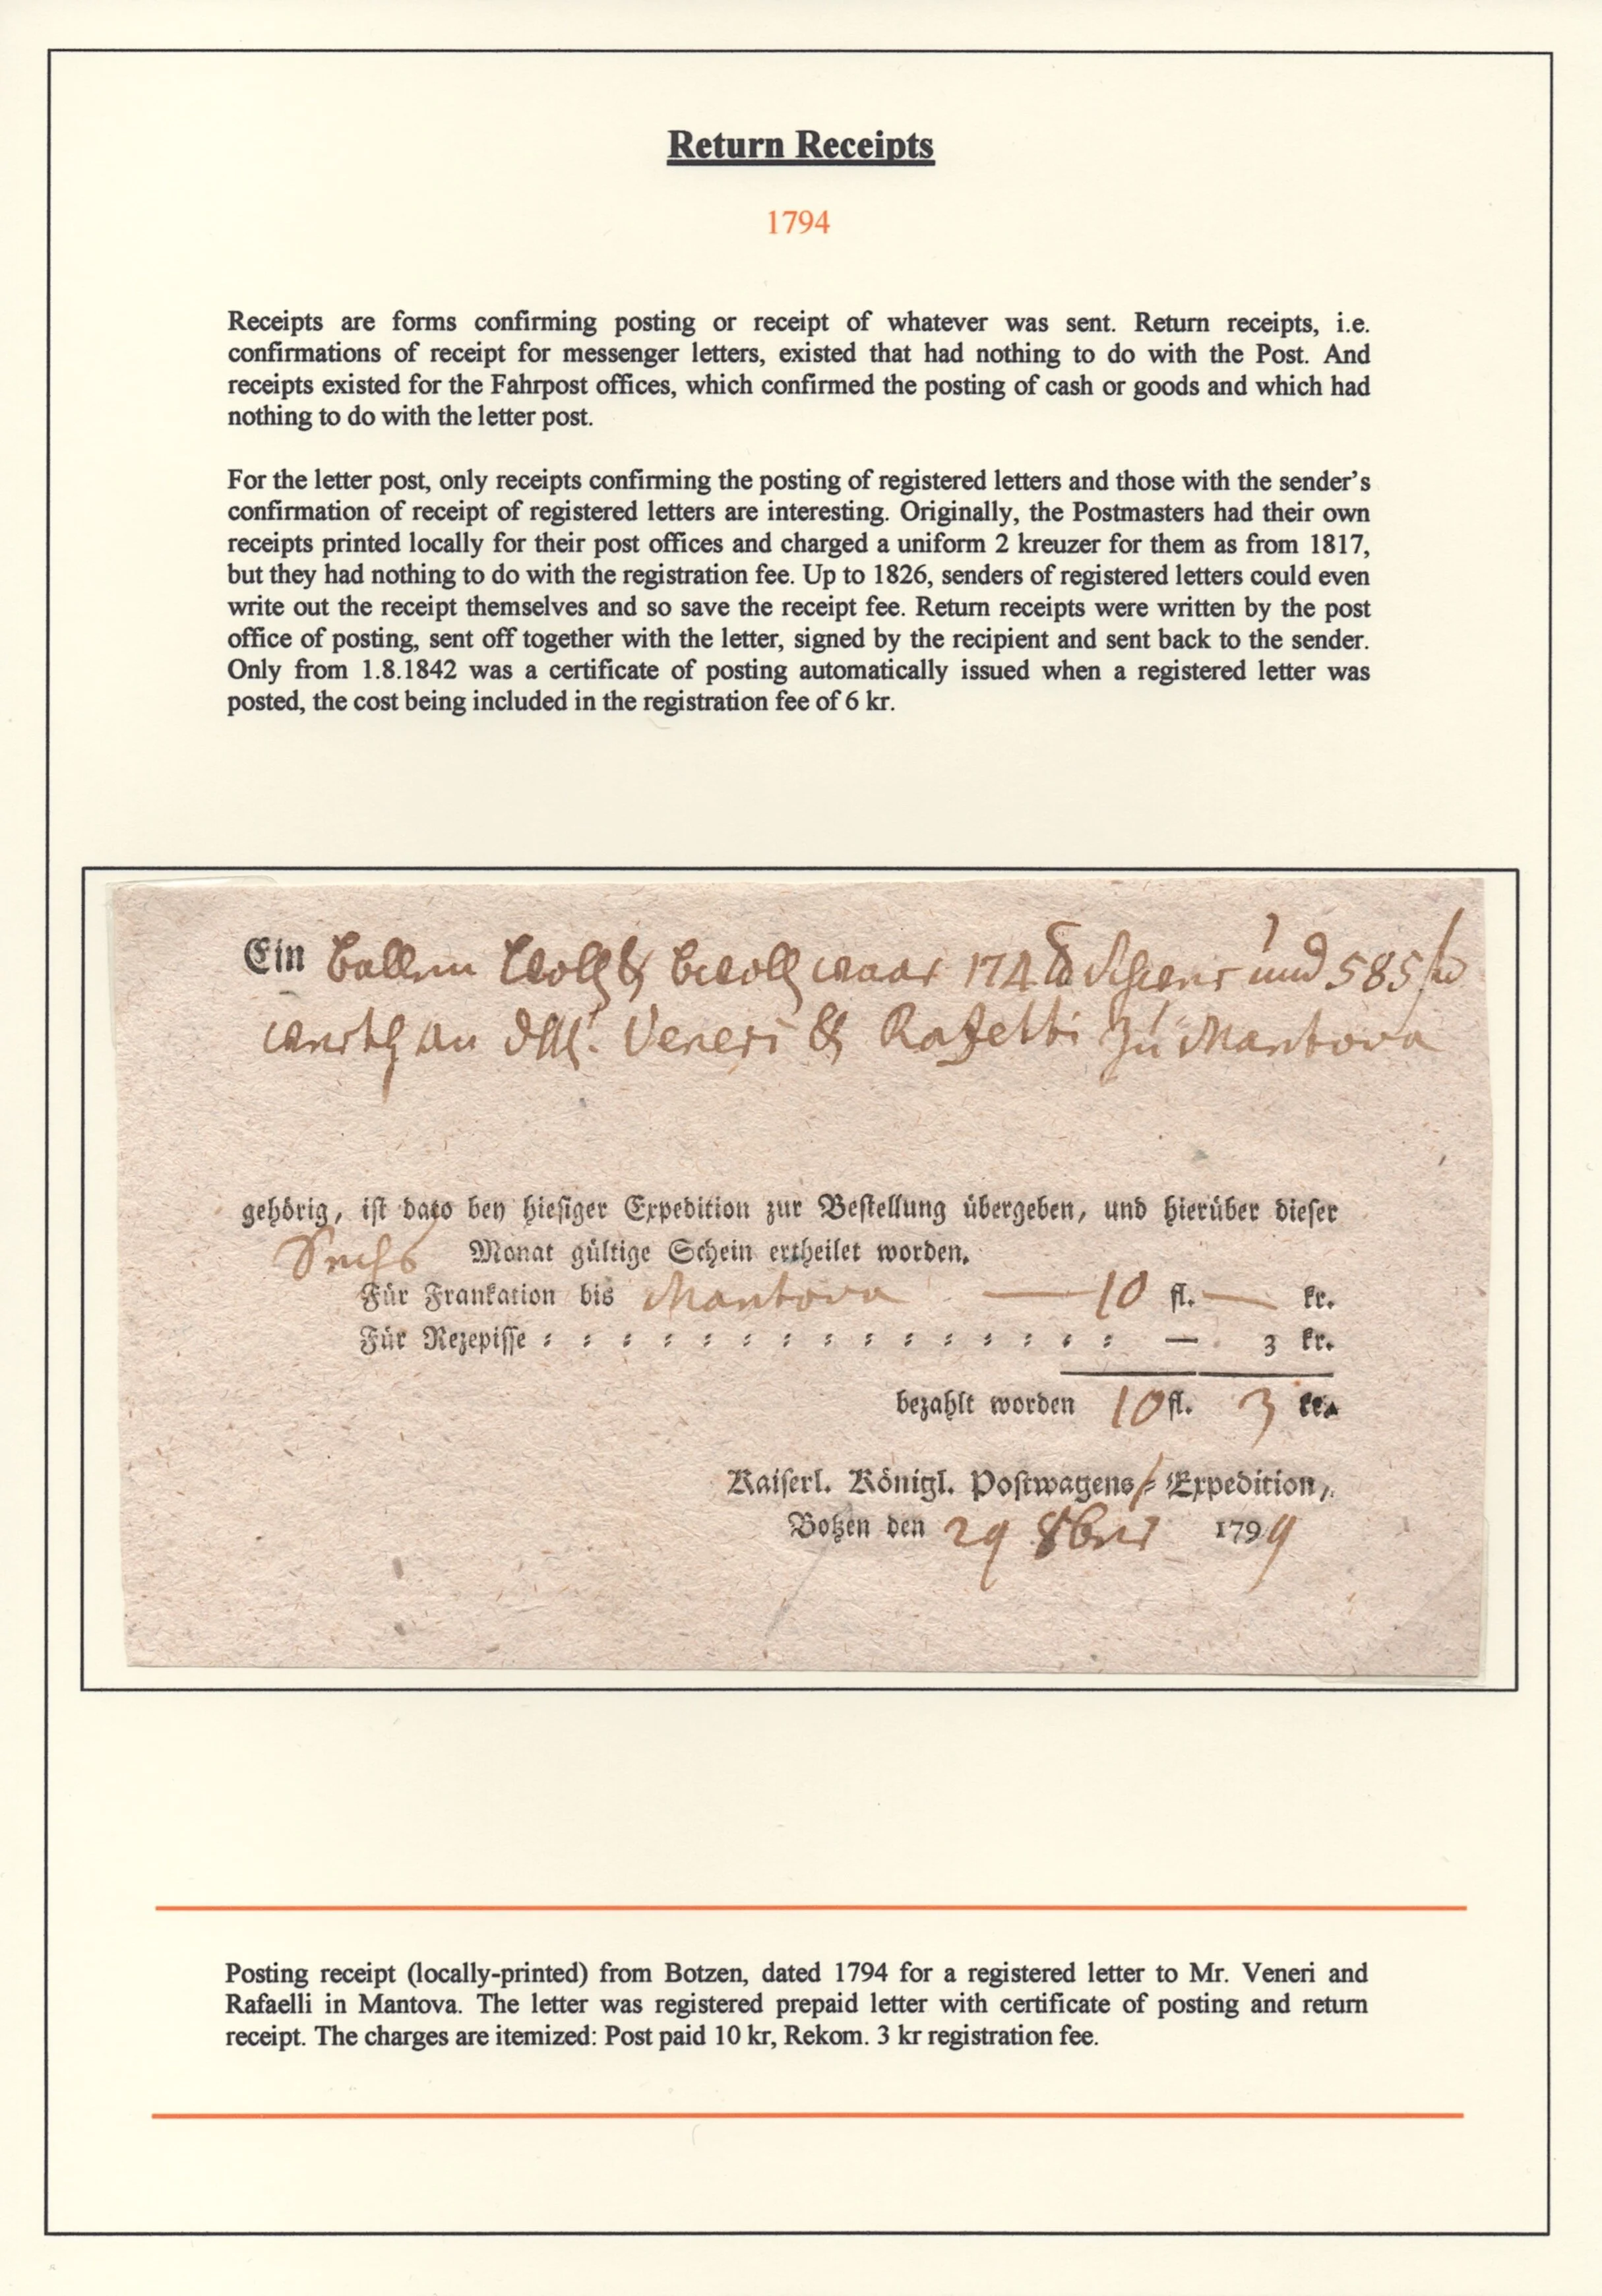 Return Receipts
1794
Receipts are forms confirming posting or receipt of whatever was sent. Return receipts, i.e.
confirmations of receipt for messenger letters, existed that had nothing to do with the Post. And
receipts existed for the Fahrpost offices, which confirmed the posting of cash or goods and which had
nothing to do with the letter post.
For the letter post, only receipts confirming the posting of registered letters and those with the sender's
confirmation of receipt of registered letters are interesting. Originally, the Postmasters had their own
receipts printed locally for their post offices and charged a uniform 2 kreuzer for them as from 1817,
but they had nothing to do with the registration fee. Up to 1826, senders of registered letters could even
write out the receipt themselves and so save the receipt fee. Return receipts were written by the post
office of posting, sent off together with the letter, signed by the recipient and sent back to the sender.
Only from 1.8.1842 was a certificate of posting automatically issued when a registered letter was
posted, the cost being included in the registration fee of 6 kr.
Ein Ballen 174 und 585
werth an Veneri & Rafelli zu Mantova
gehörig, ist dato bey hiesiger Expedition zur Bestellung übergeben, und hierüber dieser
Sechs Monat gültige Schein ertheilet worden.
Für Frankation bis Mantova — 10 fl. — kr.
Für Rezepisse : : : : : : : : : : : : : : : — 3 kr.
bezahlt worden 10 fl. 3 kr.
Kaiserl. Königl. Postwagens-Expedition,
Botzen den 29 8bris 1799
Posting receipt (locally-printed) from Botzen, dated 1794 for a registered letter to Mr. Veneri and
Rafaelli in Mantova. The letter was registered prepaid letter with certificate of posting and return
receipt. The charges are itemized: Post paid 10 kr, Rekom. 3 kr registration fee.